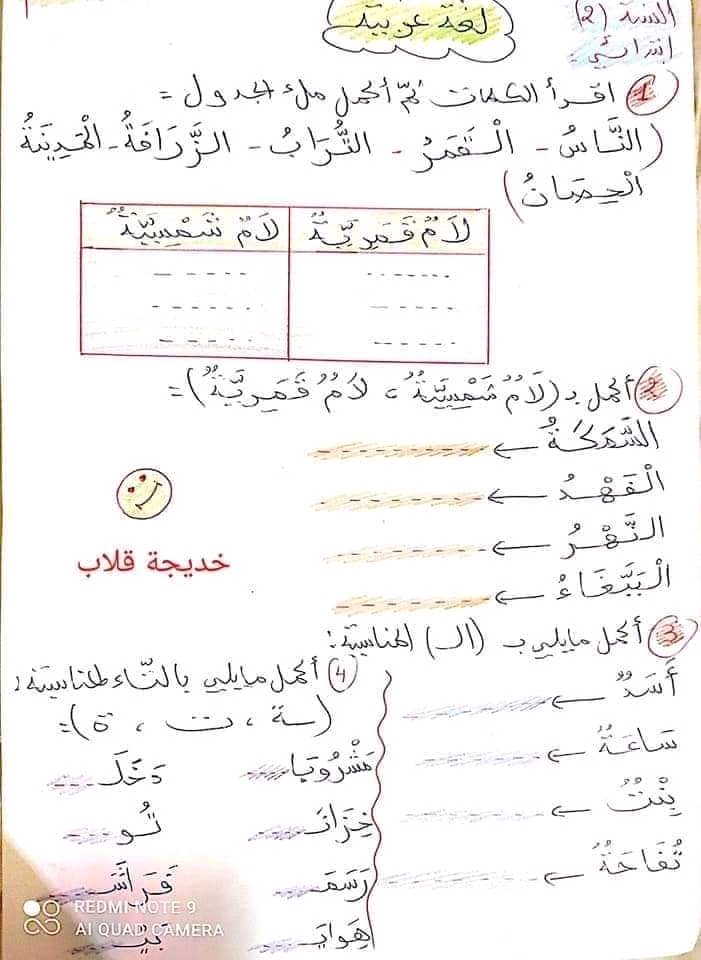 السنة (2)
ابتدائي
لغة عربية
1 اقرأ الكلمات ثمّ أكمل ملء الجدول =
(النَّاسُ - الْقَمَرُ - التُّرَابُ - الزَّرَافَةُ - الْمَدِينَةُ
الْحِصَانُ)
لاَمٌ قَمَرِيَّةٌ لاَمٌ شَمْسِيَّةٌ
2 أكمل بـ (لَامٌ شَمْسِيَّةٌ ، لَامٌ قَمَرِيَّةٌ)=
السَّمَكَةُ ←
الْفَهْدُ ←
النَّهْرُ ←
الْبَبَّغَاءُ ←
خديجة قلاب
3 أكمل مايلي بـ (الـ) المناسبة:
أَسَدٌ ←
سَاعَةٌ ←
بِنْتٌ ←
تُفَاحَةٌ ←
4 أكمل مايلي بالتّاء المناسبة:
(ـة ، ت ، ة)=
مَشْرُوبَا دَخَلَـ
خِزَانَـ تُو
رَسَمَـ فَرَاشَـ
هِوَايَـ بَيْـ
REDMI NOTE 9
AI QUAD CAMERA